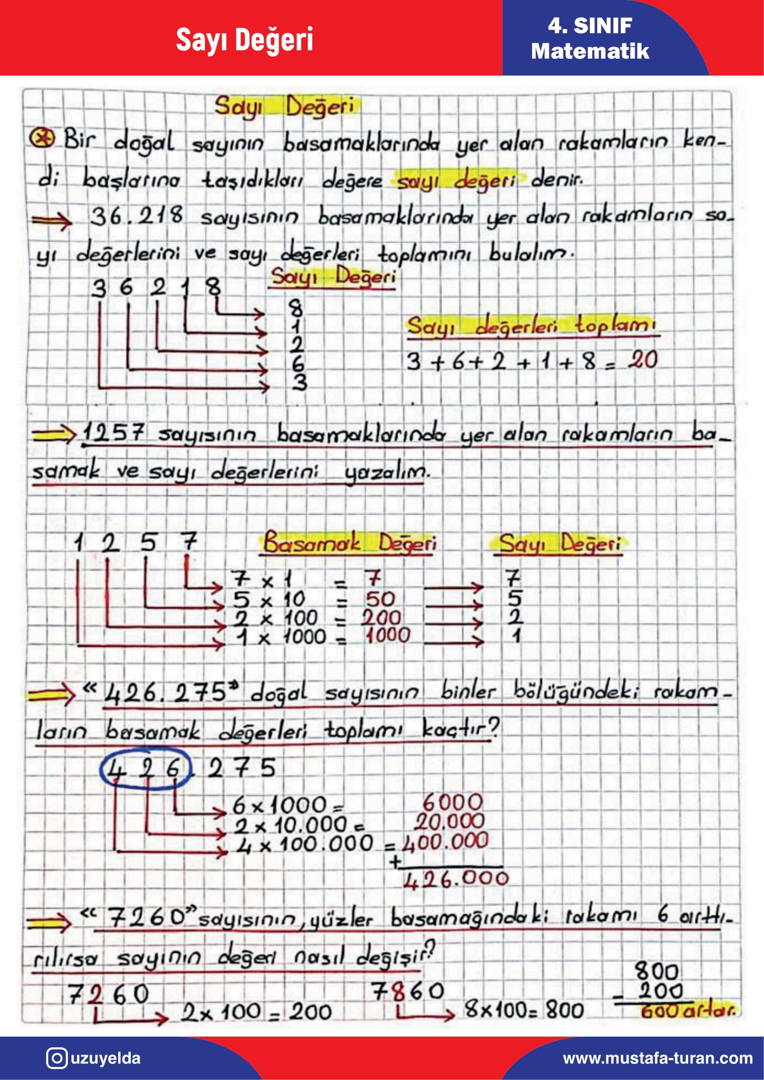 Sayı Değeri
4. SINIF
Matematik
Sayı Değeri
* Bir doğal sayının basamaklarında yer alan rakamların ken-
di başlarına taşıdıkları değere sayı değeri denir.
⇒ 36.218 sayısının basamaklarında yer alan rakamların sa-
yı değerlerini ve sayı değerleri toplamını bulalım.
3 6 2 1 8
Sayı Değeri
8
1
2
6
3
Sayı değerleri toplamı
3 + 6 + 2 + 1 + 8 = 20
⇒ 1257 sayısının basamaklarında yer alan rakamların ba-
samak ve sayı değerlerini yazalım.
1 2 5 7 Basamak Değeri Sayı Değeri
7 x 1 = 7 → 7
5 x 10 = 50 → 5
2 x 100 = 200 → 2
1 x 1000 = 1000 → 1
⇒ "426.275" doğal sayısının binler bölüğündeki rakam-
ların basamak değerleri toplamı kaçtır?
426.275
6 x 1000 = 6000
2 x 10.000 = 20.000
4 x 100.000 = 400.000
+
426.000
⇒ "7260" sayısının, yüzler basamağındaki rakamı 6 arttı-
rılırsa sayının değeri nasıl değişir?
7260 → 2 x 100 = 200
7860 → 8x100= 800
800
- 200
600 artar.
uzuyelda
www.mustafa-turan.com